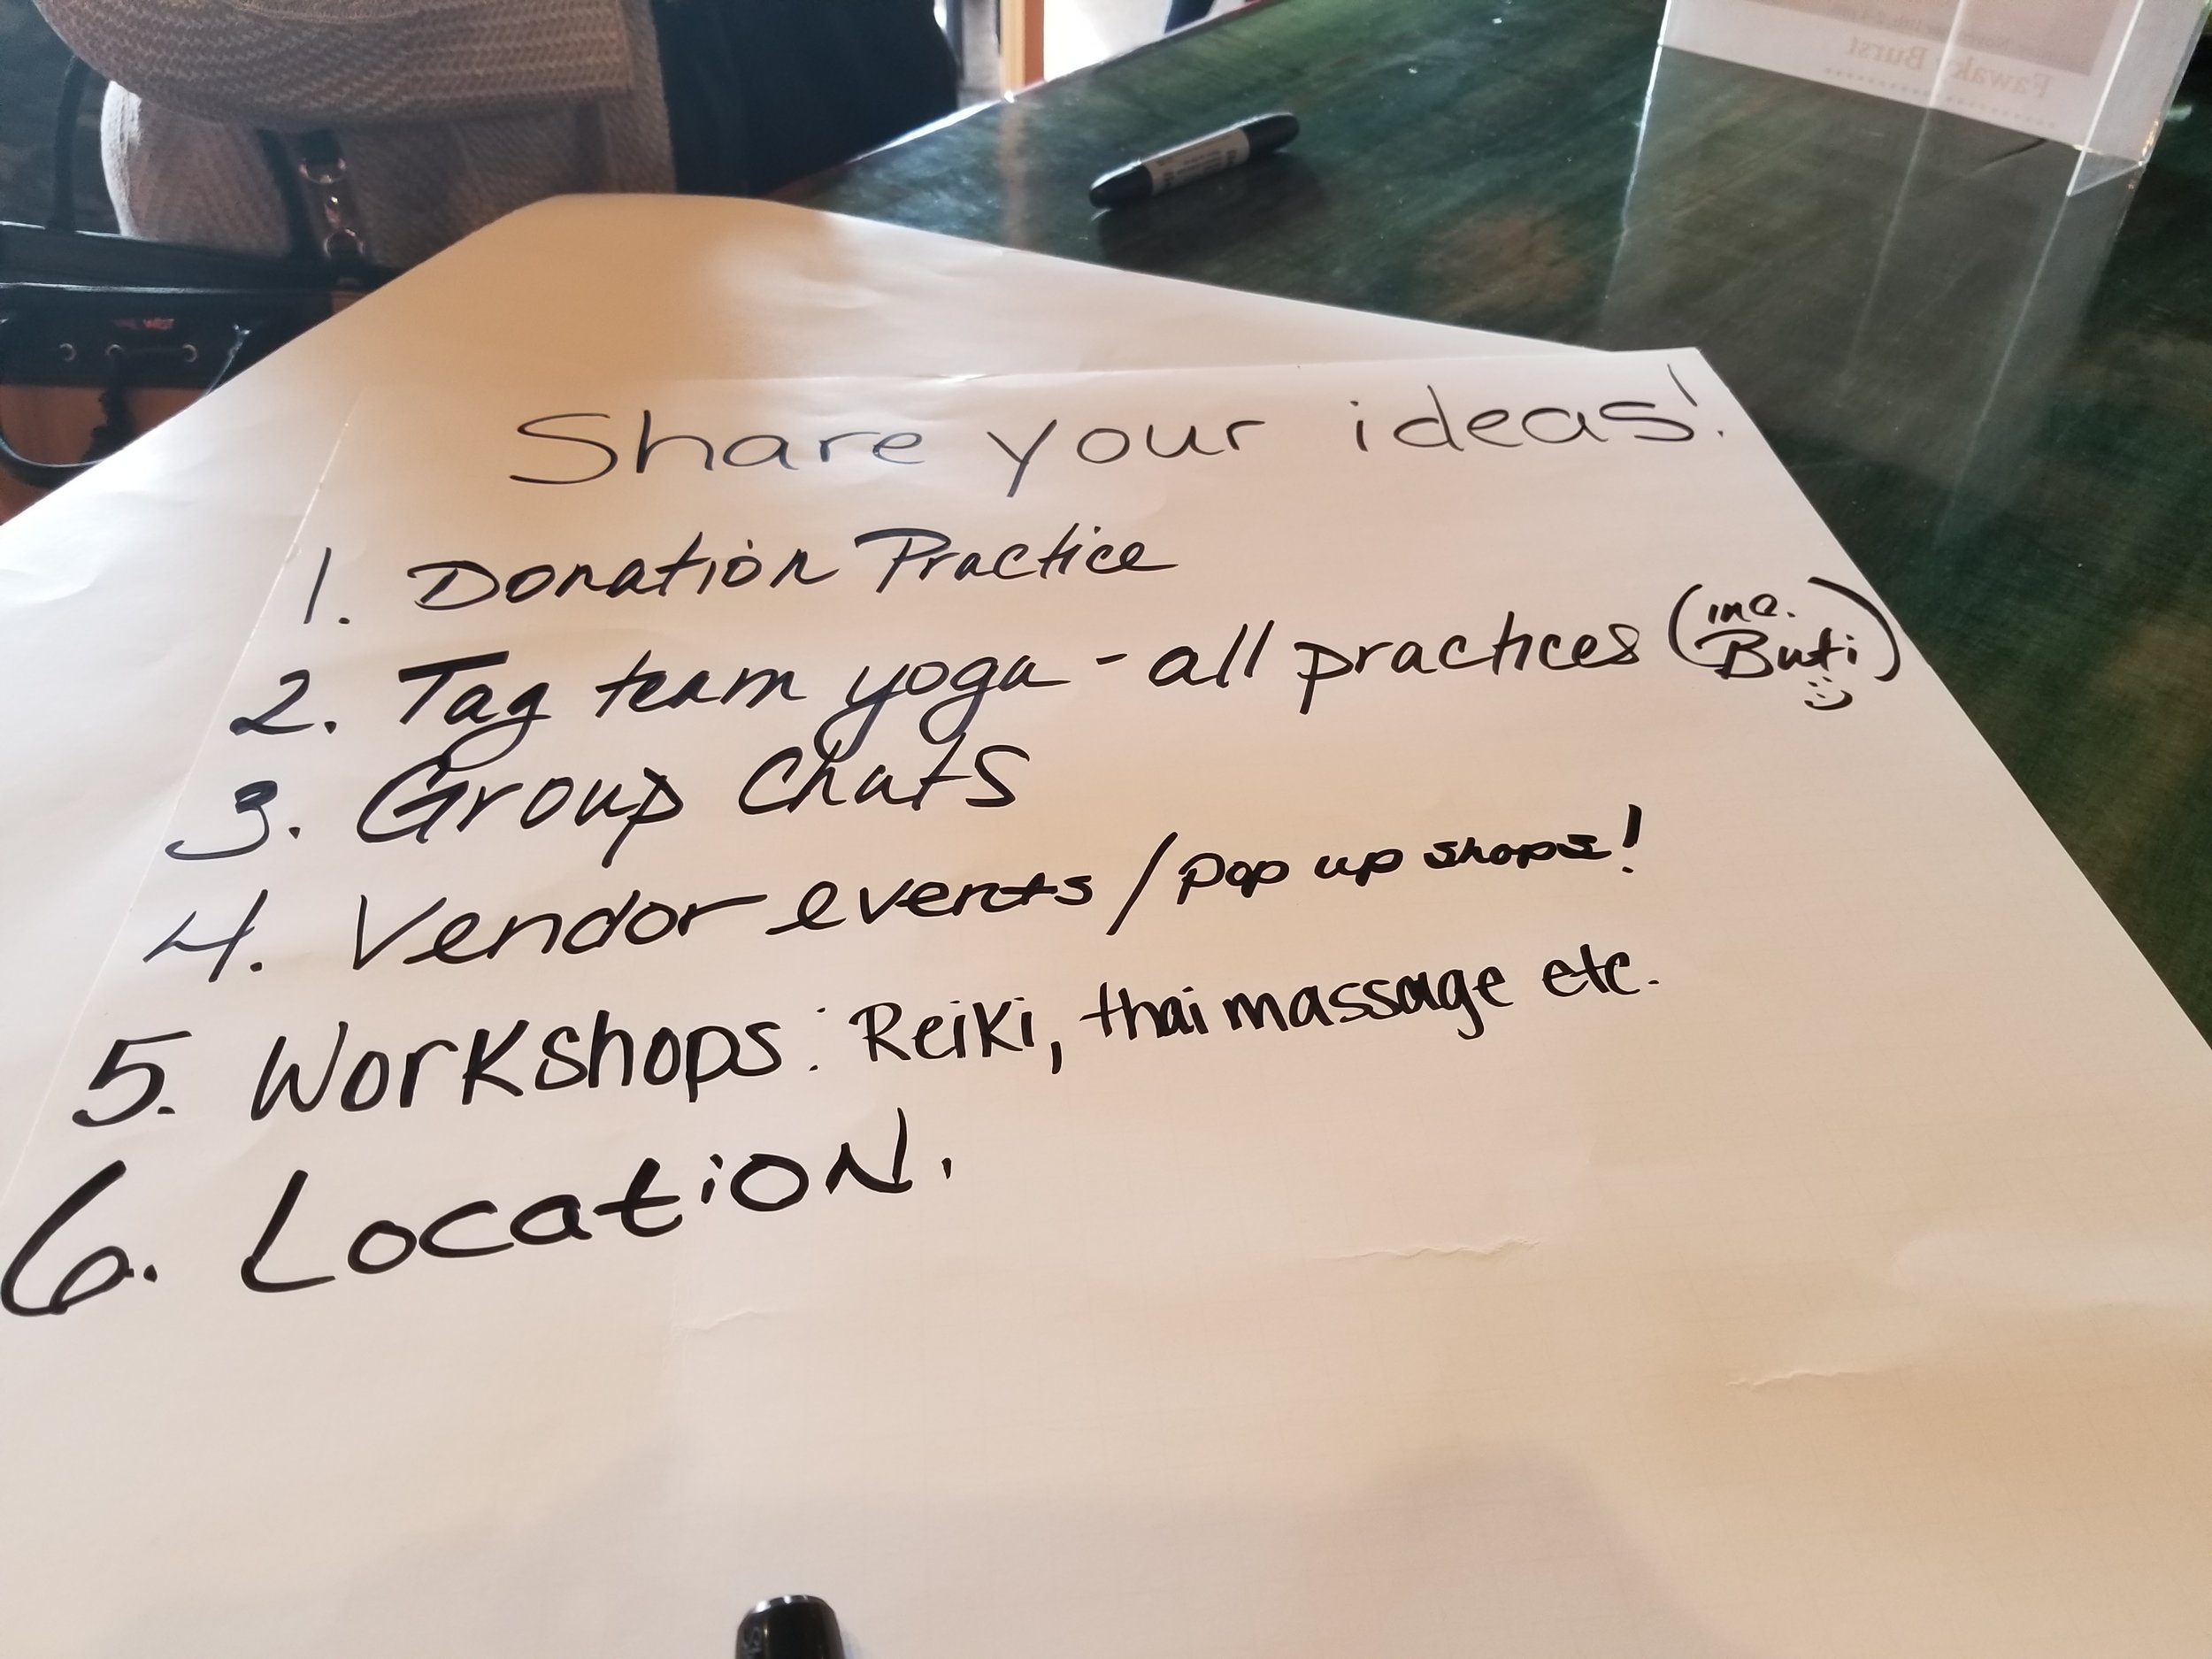 Fawaky Burst
Share your ideas!
1. Donation Practice
2. Tag team yoga - all practices (inc. Buti :))
3. Group Chats
4. Vendor events / Pop up shops!
5. Workshops: Reiki, thai massage etc.
6. Location.